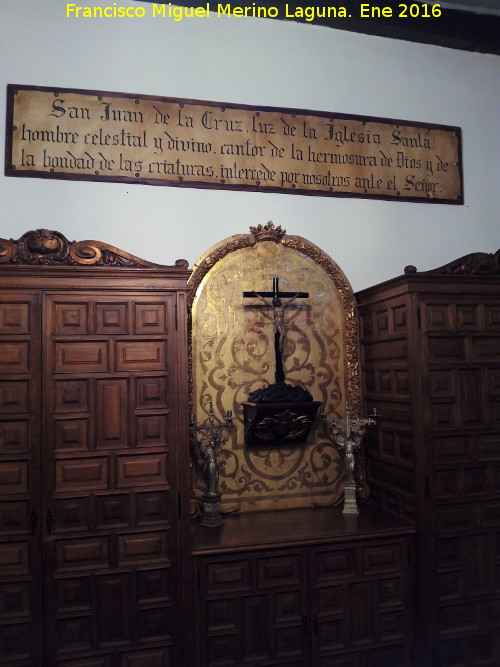 Francisco Miguel Merino Laguna. Ene 2016
San Juan de la Cruz, luz de la Iglesia Santa,
hombre celestial y divino, cantor de la hermosura de Dios y de
la bondad de las criaturas, intercede por nosotros ante el Señor.